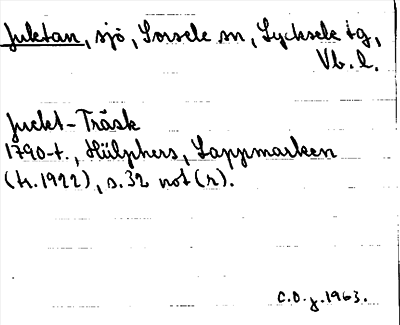 Juktan, sjö, Sorsele sn, Lycksele tg,
Vb. l.
Juckt-Träsk
1790-t., Hülphers, Lappmarken
(tr. 1922), s. 32 not (r).
C.O-g. 1963.